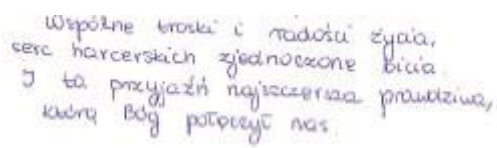 Wspólne troski i radości życia,
serc harcerskich zjednoczone bicia
I ta przyjaźń najszczersza prawdziwa,
którą Bóg połączył nas.